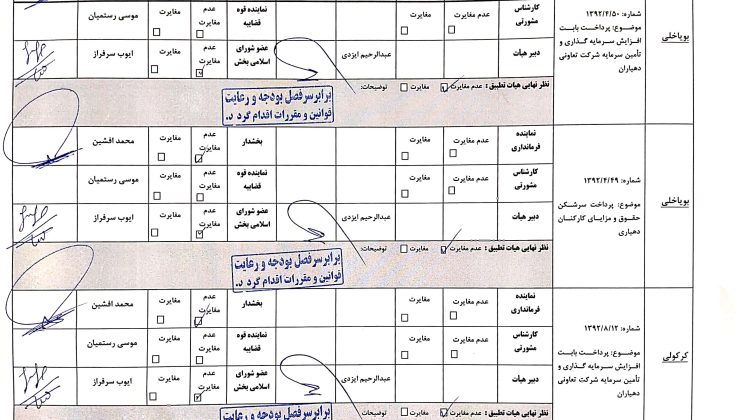 بویاخلی
شماره: ۱۳۹۲/۴/۵۰
موضوع: پرداخت بابت
افزایش سرمایه گذاری و
تأمین سرمایه شرکت تعاونی
دهیاران
کارشناس مشورتی
عدم مغایرت
مغایرت
نماینده قوه قضاییه
عدم مغایرت
مغایرت
موسی رستمیان
دبیر هیات
عبدالرحیم ایزدی
عضو شورای اسلامی بخش
عدم مغایرت
مغایرت
ایوب سرفراز
نظر نهایی هیات تطبیق: عدم مغایرت مغایرت توضیحات:
برابر سرفصل بودجه و رعایت
قوانین و مقررات اقدام گرد د.
بویاخلی
شماره: ۱۳۹۲/۴/۴۹
موضوع: پرداخت سرشکن
حقوق و مزایای کارکنان
دهیاری
نماینده فرمانداری
عدم مغایرت
مغایرت
بخشدار
عدم مغایرت
مغایرت
محمد افشین
کارشناس مشورتی
عدم مغایرت
مغایرت
نماینده قوه قضاییه
عدم مغایرت
مغایرت
موسی رستمیان
دبیر هیات
عبدالرحیم ایزدی
عضو شورای اسلامی بخش
عدم مغایرت
مغایرت
ایوب سرفراز
نظر نهایی هیات تطبیق: عدم مغایرت مغایرت توضیحات:
برابر سرفصل بودجه و رعایت
قوانین و مقررات اقدام گرد د.
کرکولی
شماره: ۱۳۹۲/۸/۱۲
موضوع: پرداخت بابت
افزایش سرمایه گذاری و
تأمین سرمایه شرکت تعاونی
دهیاران
نماینده فرمانداری
عدم مغایرت
مغایرت
بخشدار
عدم مغایرت
مغایرت
محمد افشین
کارشناس مشورتی
عدم مغایرت
مغایرت
نماینده قوه قضاییه
عدم مغایرت
مغایرت
موسی رستمیان
دبیر هیات
عبدالرحیم ایزدی
عضو شورای اسلامی بخش
عدم مغایرت
مغایرت
ایوب سرفراز
نظر نهایی هیات تطبیق: عدم مغایرت مغایرت توضیحات:
برابر سرفصل بودجه و رعایت